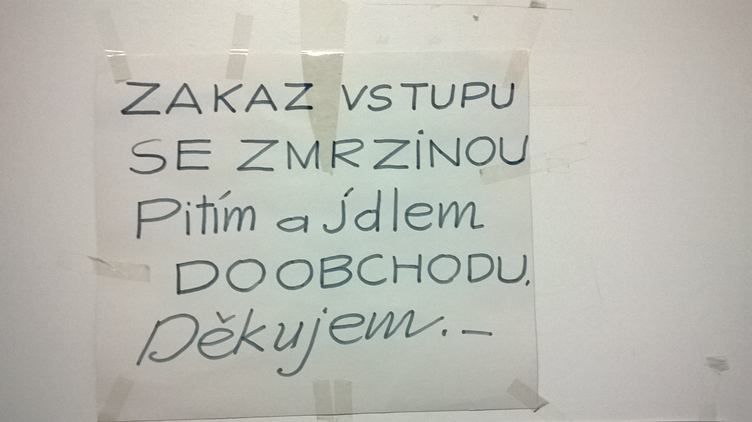 ZAKAZ VSTUPU
SE ZMRZiNOU
Pitím a jídlem
DO OBCHODU.
Děkujem. –